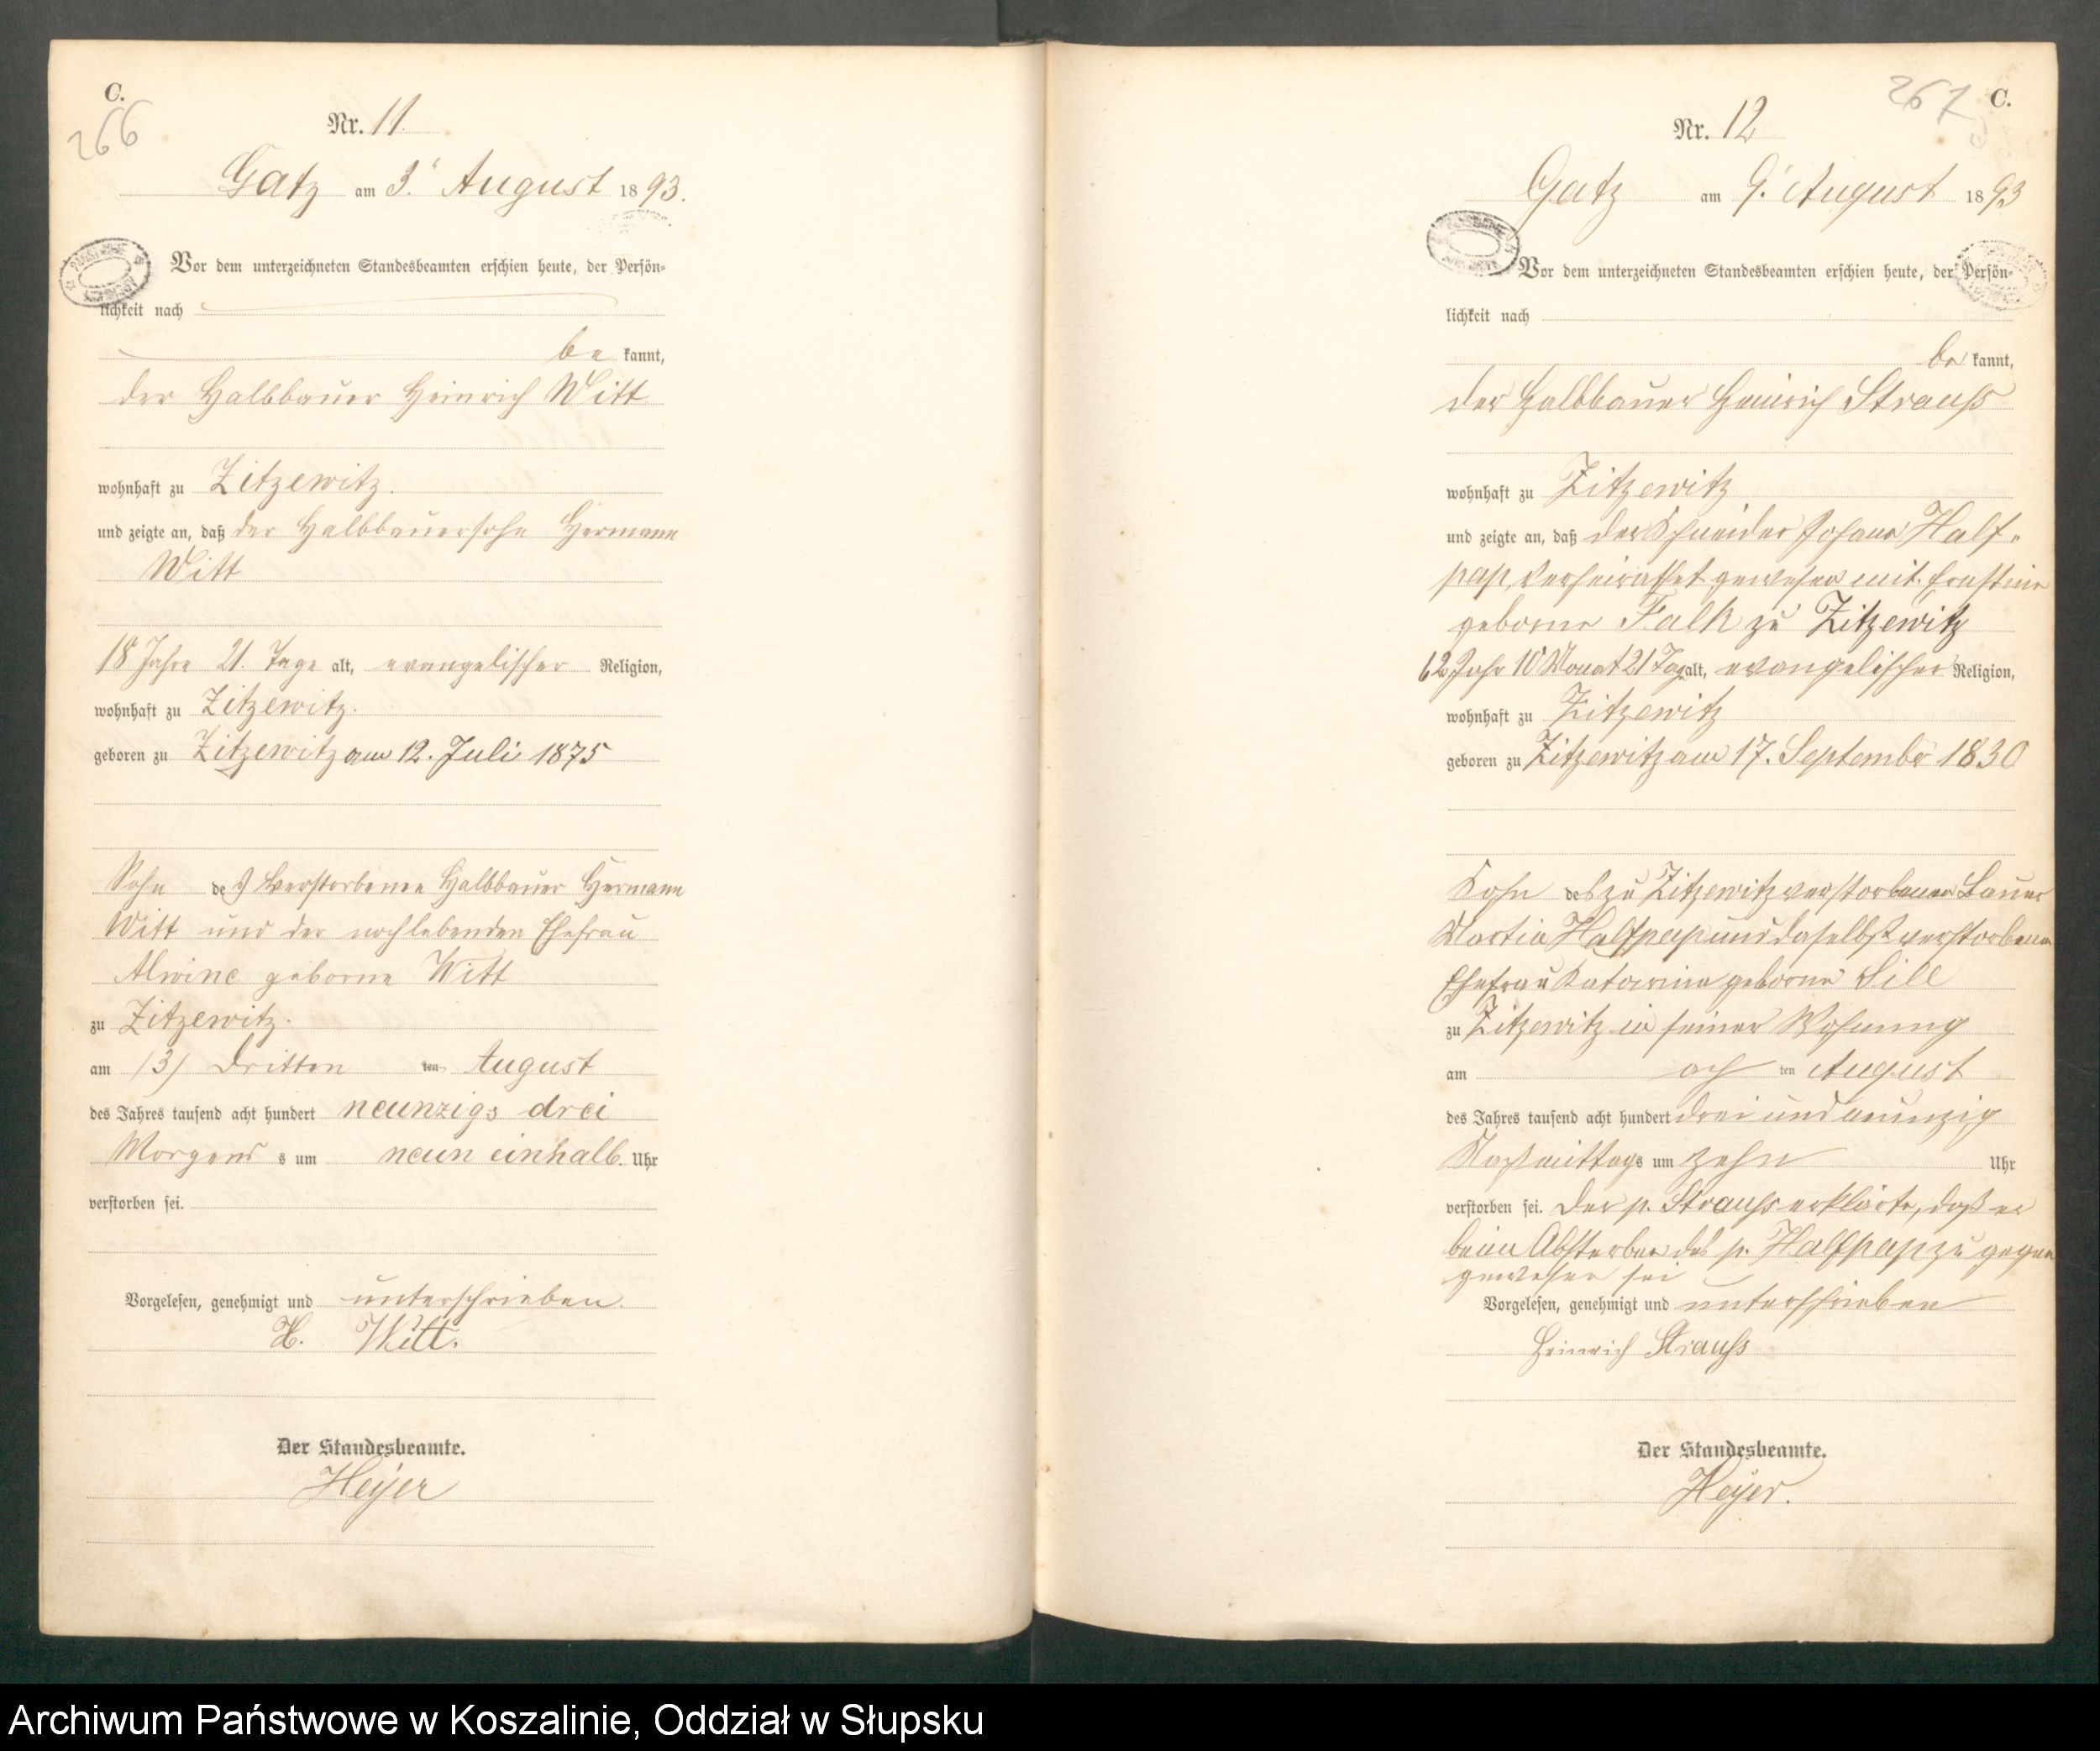 C.
266
Nr. 11.
Gatz am 3. August 1893.
Vor dem unterzeichneten Standesbeamten erschien heute, der Persön-
lichkeit nach
be kannt,
der Halbbauer Heinrich Witt
wohnhaft zu Zitzewitz.
und zeigte an, daß der Halbbauersohn Hermann
Witt
18 Jahre 21. Tage alt, evangelischer Religion,
wohnhaft zu Zitzewitz.
geboren zu Zitzewitz am 12. Juli 1875
Sohn des verstorbenen Halbbauer Hermann
Witt und der noch lebenden Ehefrau
Alwine geborne Witt
zu Zitzewitz.
am /3/ dritten ten August
des Jahres tausend acht hundert neunzig drei
Morgens um neun einhalb. Uhr
verstorben sei.
Vorgelesen, genehmigt und unterschrieben.
H. Witt.
Der Standesbeamte.
Heyer
267
C.
Nr. 12
Gatz am 9. August 1893
Vor dem unterzeichneten Standesbeamten erschien heute, der Persön-
lichkeit nach
be kannt,
der Halbbauer Heinrich Strauss
wohnhaft zu Zitzewitz
und zeigte an, daß der Schneider Johann Half-
pap, verheirathet gewesen mit Ernstine
geborne Falk zu Zitzewitz
62 Jahr 10 Monat 21 Tag alt, evangelischer Religion,
wohnhaft zu Zitzewitz
geboren zu Zitzewitz am 17. September 1830
Sohn des zu Zitzewitz verstorbenen Bauer
Martin Halfpap und daselbst verstorbenen
Ehefrau geborne
zu Zitzewitz in seiner Wohnung
am ach ten August
des Jahres tausend acht hundert drei und neunzig
Nachmittags um zehn Uhr
verstorben sei. Der p. Strauss erklärte, daß er
beim Absterben des p. Halfpap zu gegen
gewesen sei
Vorgelesen, genehmigt und unterschrieben
Heinrich Strauss
Der Standesbeamte.
Heyer.
Archiwum Państwowe w Koszalinie, Oddział w Słupsku